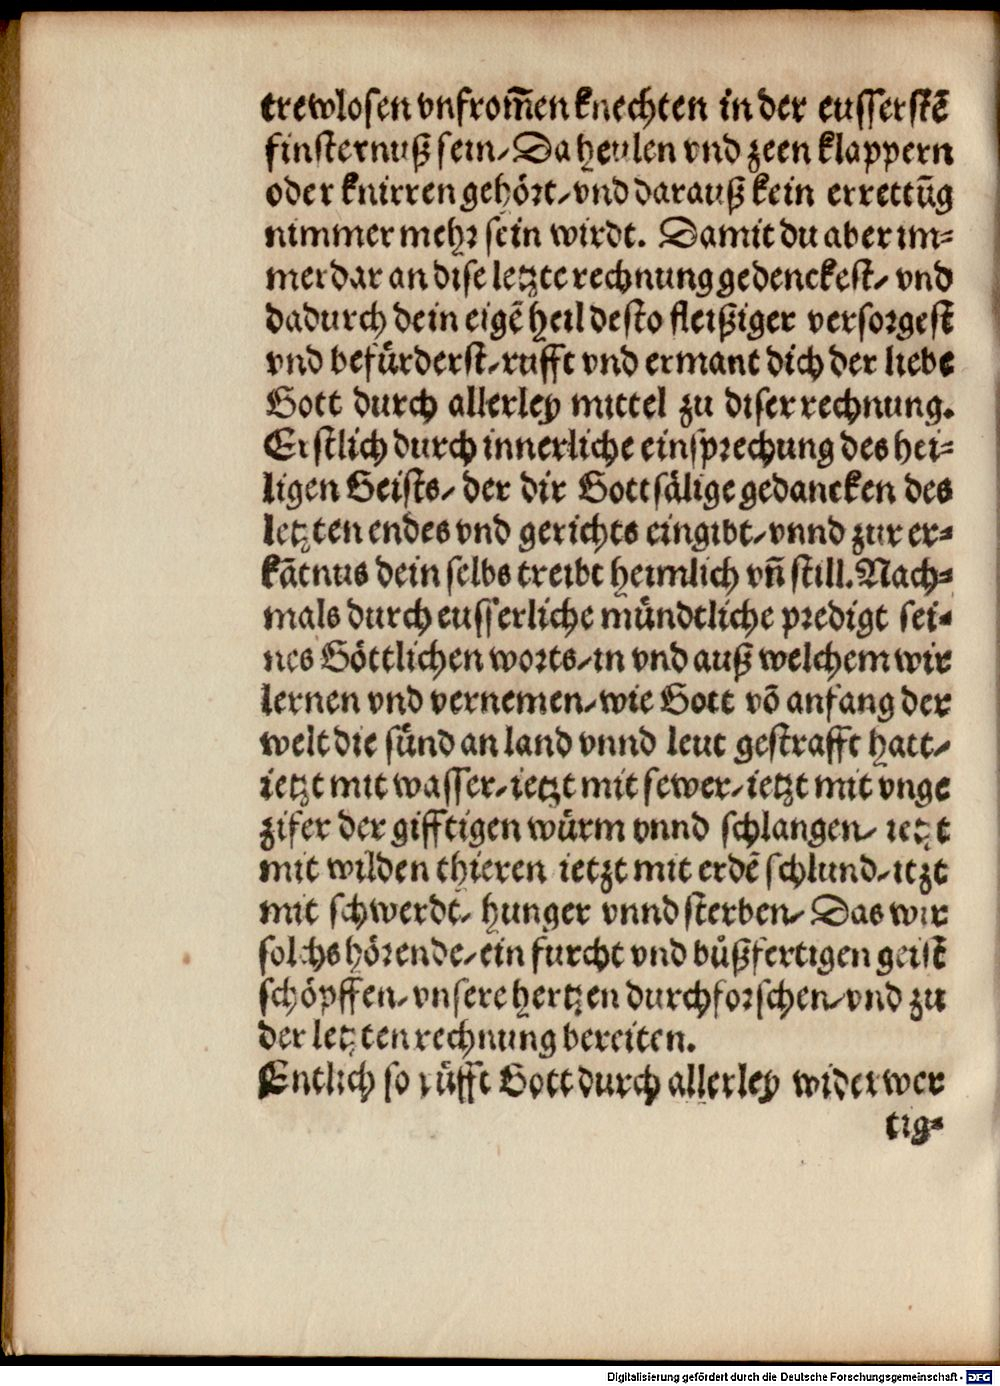 trewlosen vnfrom̃en knechten in der eusserstẽ
finsternuß sein/ Da heulen vnd zeen klappern
oder knirren gehört/ vnd darauß kein errettũg
nimmer mehr sein wirdt. Damit du aber im-
merdar an dise letzte rechnung gedenckest/ vnd
dadurch dein eigẽ heil desto fleißiger versorgest
vnd befürderst/ rufft vnd ermant dich der liebe
Gott durch allerley mittel zu diser rechnung.
Erstlich durch innerliche einsprechung des hei-
ligen Geists/ der dir Gottsälige gedancken des
letzten endes vnd gerichts eingibt/ vnnd zur er-
kãtnus dein selbs treibt heimlich vñ still. Nach-
mals durch eusserliche mündtliche predigt sei-
nes Göttlichen worts/ in vnd auß welchem wir
lernen vnd vernemen/ wie Gott võ anfang der
welt die sünd an land vnnd leut gestrafft hatt/
ietzt mit wasser/ ietzt mit fewer/ ietzt mit vnge
zifer der gifftigen würm vnnd schlangen/ ietzt
mit wilden thieren ietzt mit erdẽ schlund/ itzt
mit schwerdt/ hunger vnnd sterben/ Das wir
solchs hörende/ ein furcht vnd bůßfertigen geist
schöpffen/ vnsere hertzen durchforschen/ vnd zu
der letzten rechnung bereiten.
Entlich so rüfft Gott durch allerley widerwer
tig-
Digitalisierung gefördert durch die Deutsche Forschungsgemeinschaft - DFG